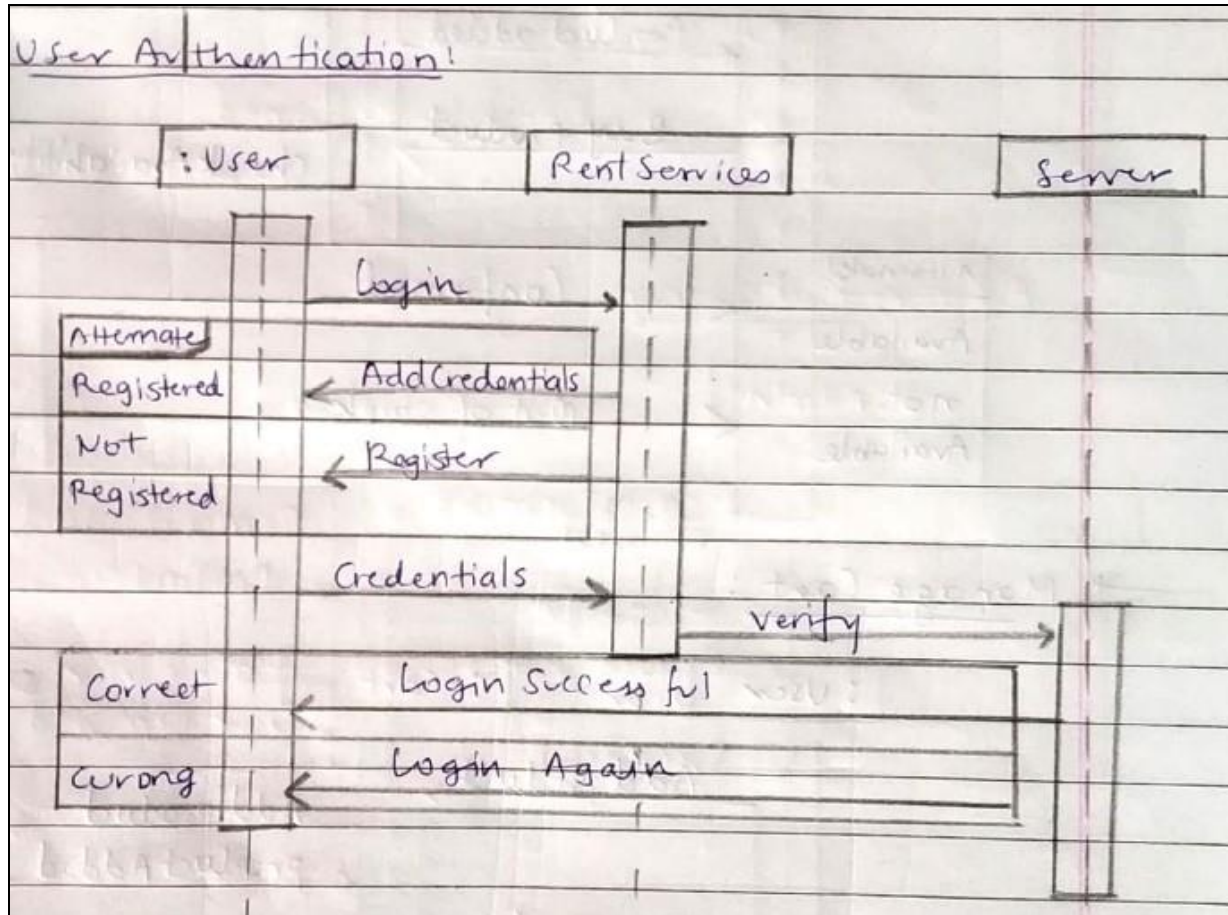 User Authentication:
: User
Rent Services
Server
Login
Alternate
Registered
AddCredentials
Not
Registered
Register
Credentials
Verify
Correct
Login Successful
Wrong
Login Again